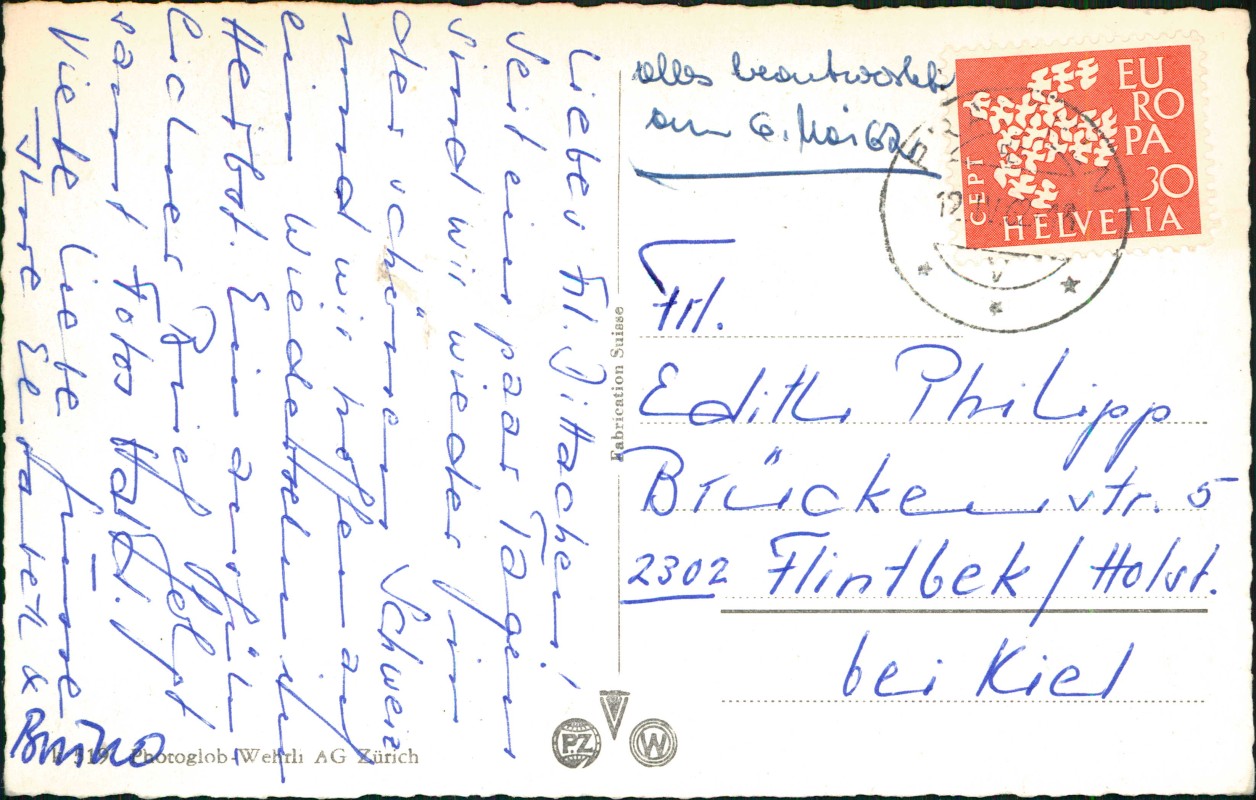 Liebes Frl. Dittachen!
Seit ein paar Tagen
sind wir wieder in
der schönen Schweiz
und wir hoffen auf
ein Wiedersehen im
Herbst. Ein ausführ-
licher Brief folgt
samt Fotos
Viele liebe Grüsse
Ihre Elisabeth &
Bruno
alles beantwortet
am 6. Mai 62
Frl.
Edith Philipp
Brückenstr. 5
2302 Flintbek / Holst.
bei Kiel
EU
RO
PA
30
CEPT
HELVETIA
Fabrication Suisse
PZ
W
Photoglob-Wehrli AG Zürich